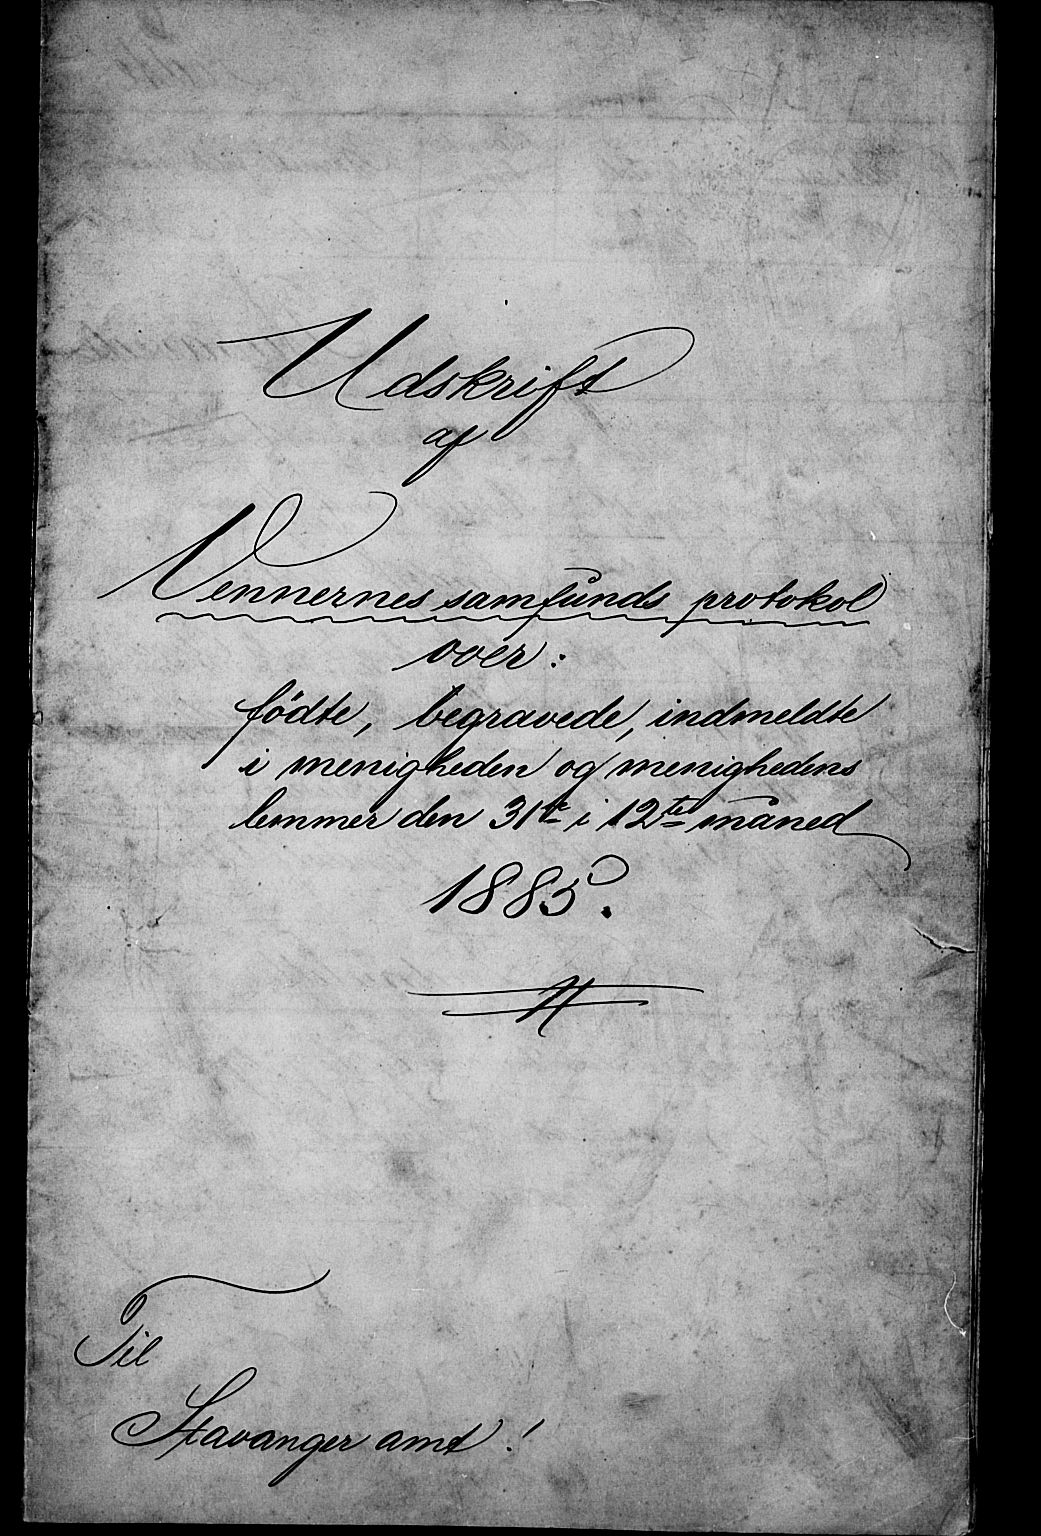 Udskrift
af
Vennernes samfunds protokol
over:
fødte, begravede, indmeldte
i menigheden og menighedens
lemmer den 31te i 12te måned
1885.
Til
Stavanger amt!